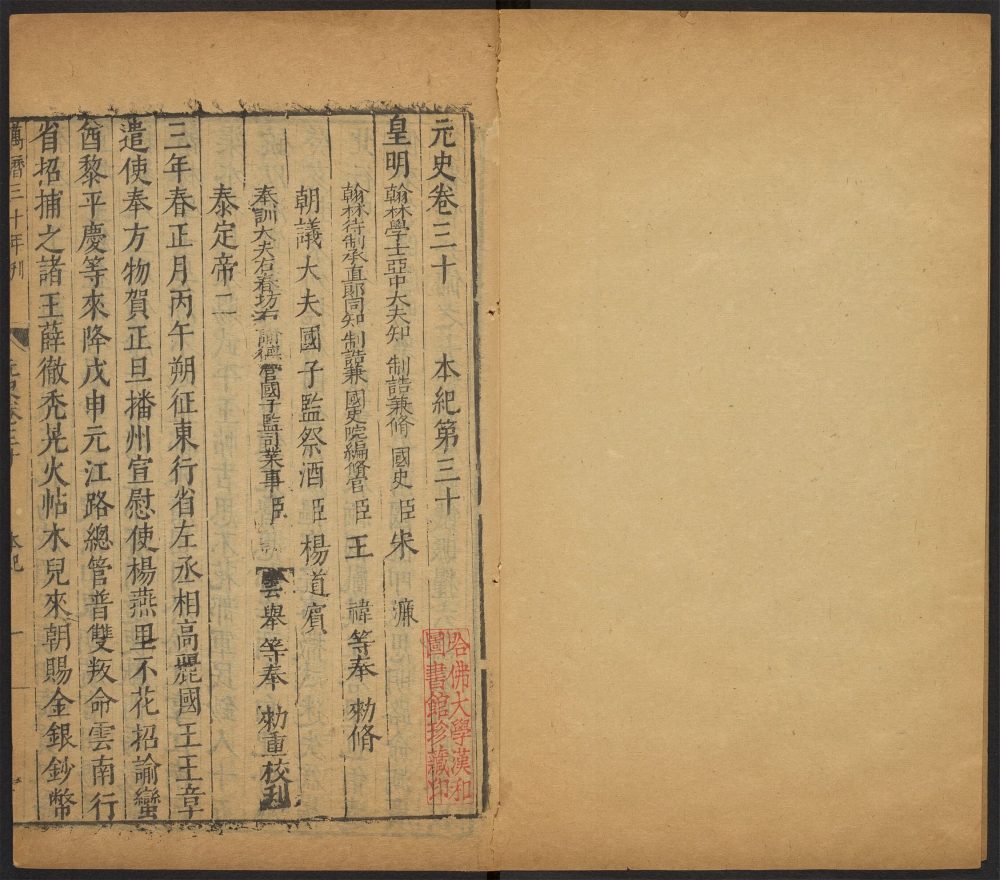 元史卷三十 本紀第三十
皇明 翰林學士亞中大夫知 制誥兼脩 國史 臣 宋 濂
翰林待制承直郎同知 制誥兼 國史院編脩官 臣 王 禕等奉 勑脩
朝議大夫國子監祭酒 臣 楊道賓
奉訓大夫右春坊右 諭德管國子監司業事 臣 雲舉等奉 勑重校刊
泰定帝二
三年春正月丙午朔征東行省左丞相高麗國王王章
遣使奉方物賀正旦播州宣慰使楊燕里不花招諭蠻
酋黎平慶等來降戊申元江路總管普雙叛命雲南行
省招捕之諸王薛徹禿晃火帖木兒來朝賜金銀鈔幣
萬曆三十年刊
本紀
一
哈佛大學漢和
圖書館珍藏印